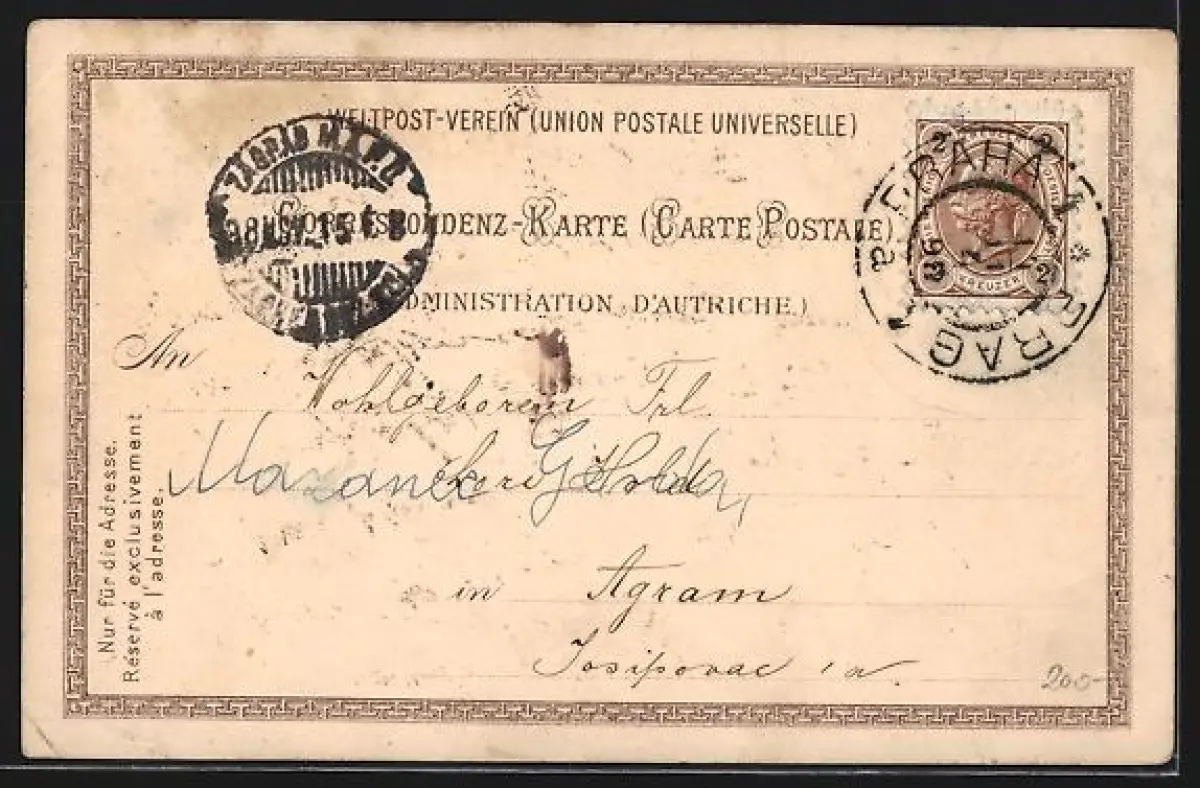 WELTPOST-VEREIN (UNION POSTALE UNIVERSELLE)
CORRESPONDENZ-KARTE (CARTE POSTALE)
ADMINISTRATION D'AUTRICHE.)
ZAGRAB
PRAHA
PRAG
2 2
2
KREUZER
An
Wohlgeboren Frl.
Mazanek
in Agram
Josipovac 1a.
Nur für die Adresse.
Réservé exclusivement
à l'adresse.
200-